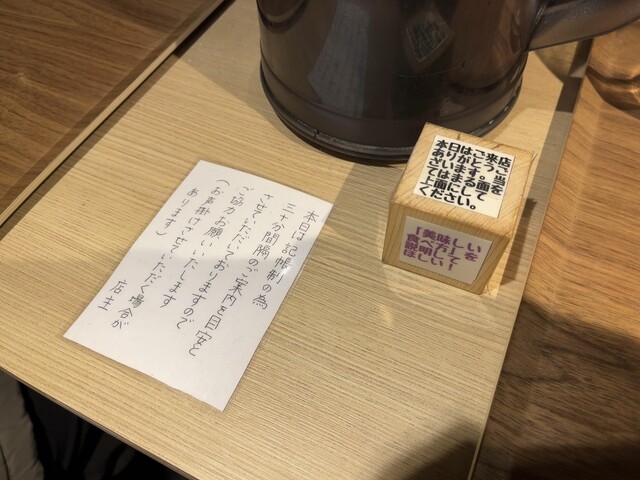 本日は記帳制の為
三十分間隔のご案内を目安と
させていただいておりますので
ご協力お願いいたします
(お声掛けさせていただく場合が
あります)
店主
本日はご来店
ありがとうご
ざいます。当
てはまる面を
上面にして
ください。
「美味しい
食べ方」を
説明して
ほしい!